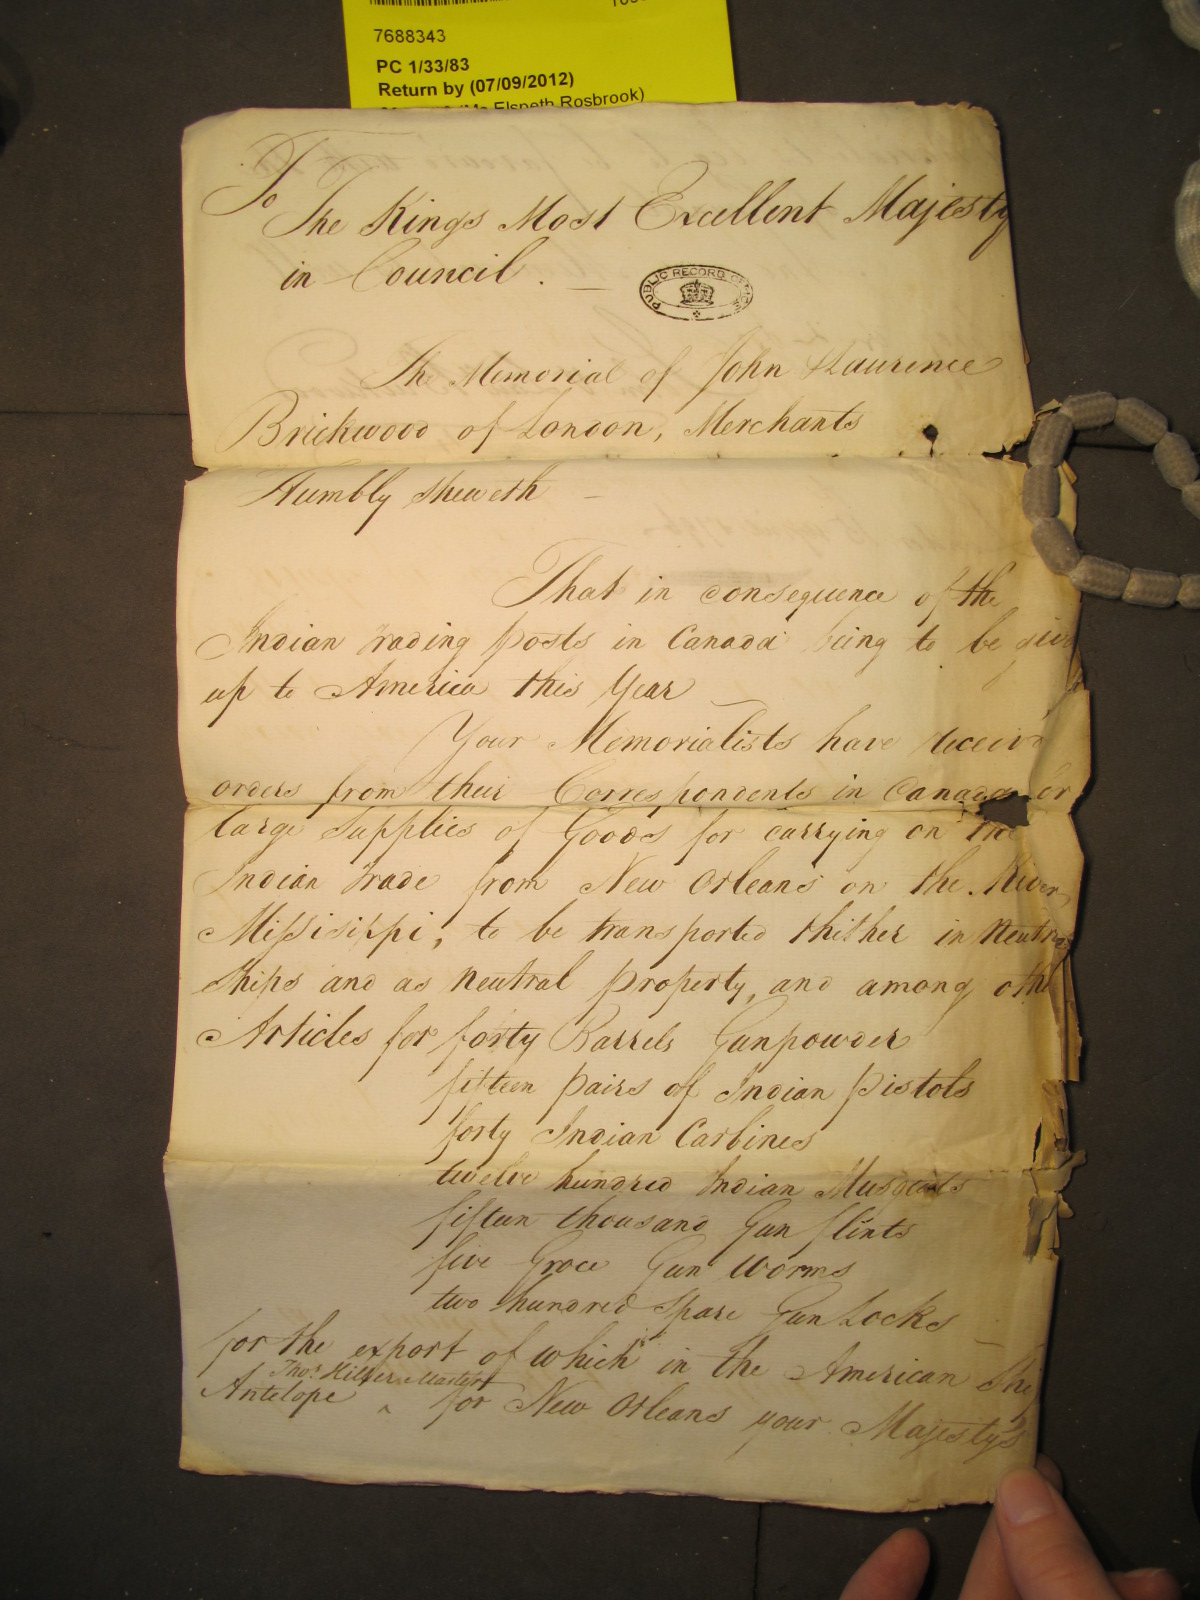 7688343
PC 1/33/83
Return by (07/09/2012)
(Ms Elspeth Rosbrook)
To
The Kings Most Excellent Majesty
in Council. —
PUBLIC RECORD OFFICE
The Memorial of John & Laurence
Brickwood of London, Merchants
Humbly Sheweth —
That in consequence of the
Indian trading posts in Canada being to be give
up to America this Year
Your Memorialists have receiv
orders from their Correspondents in Canada for
large Supplies of Goods for carrying on the
Indian Trade from New Orleans on the River
Missisippi, to be transported thither in Neutra
Ships and as Neutral property, and among oth
Articles for forty Barrels Gunpowder
fifteen pairs of Indian Pistols
forty Indian Carbines
twelve hundred Indian Musquets
fifteen thousand Gun flints
five Groce Gun Worms
two hundred Spare Gun Locks —
for the export of which in the American Ship
Thos. Hillier Master
Antelope ^ for New Orleans your Majesty's